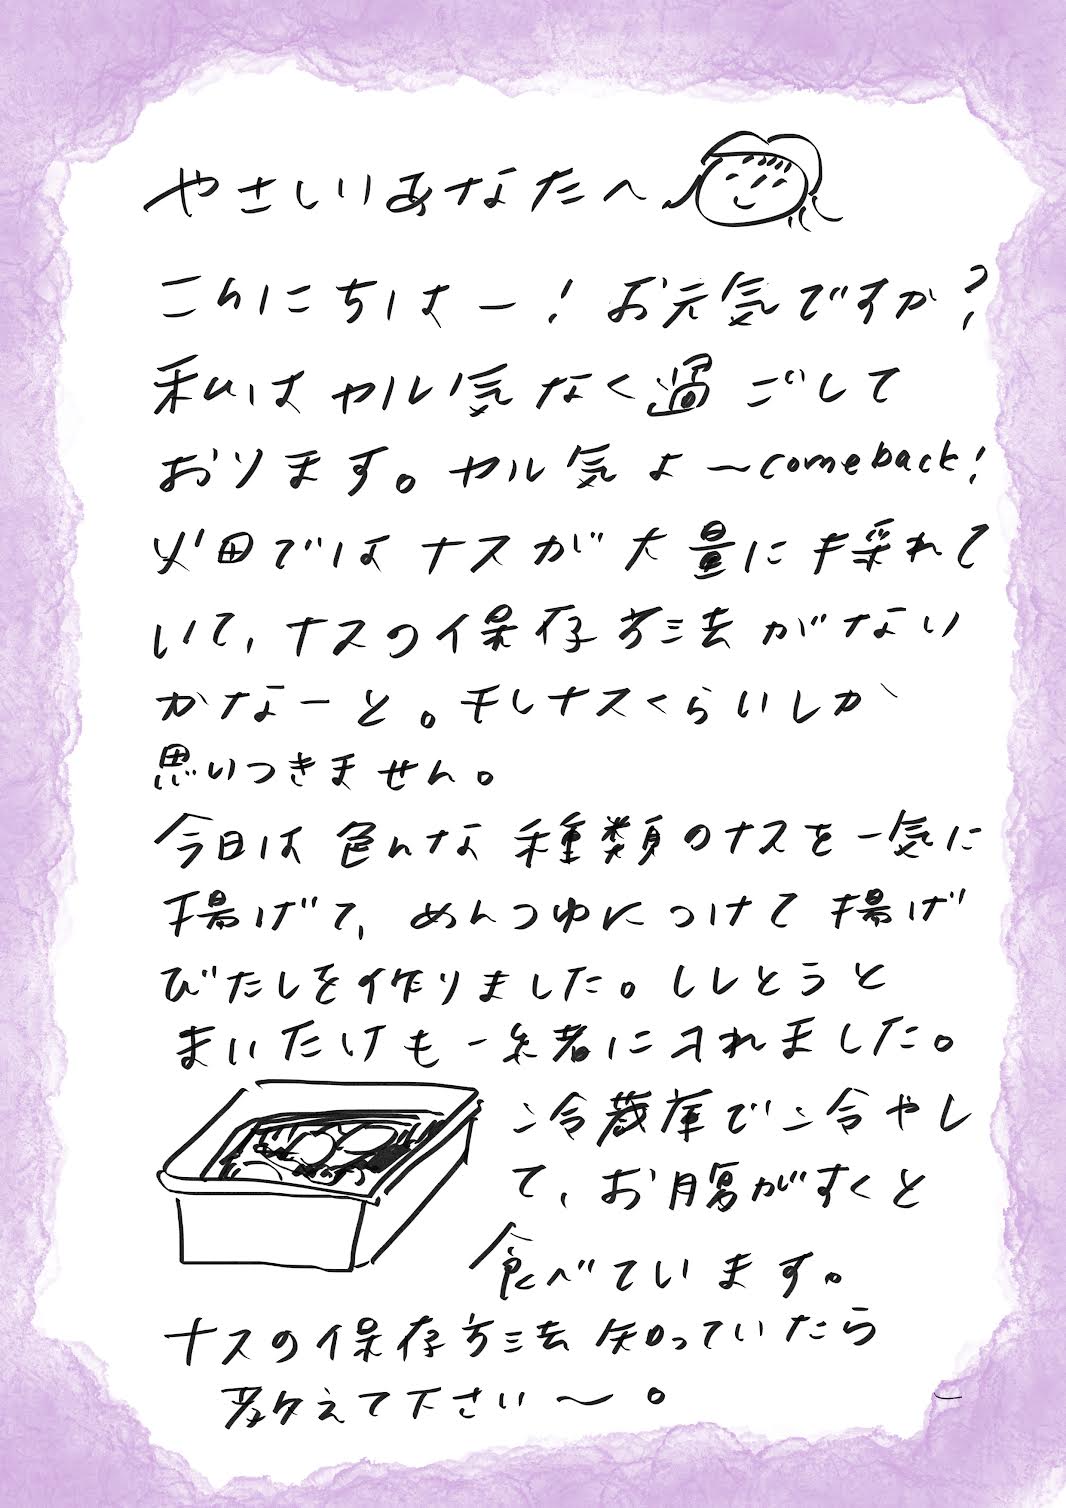 やさしいあなたへ
こんにちはー！お元気ですか？
私はヤル気なく過ごして
おります。ヤル気よ〜comeback!
畑ではナスが大量に採れて
いて、ナスの保存方法がない
かなーと。干しナスくらいしか
思いつきません。
今日は色んな種類のナスを一気に
揚げて、めんつゆにつけて揚げ
びたしを作りました。ししとうと
まいたけも一緒に入れました。
冷蔵庫で冷やし
て、お腹がすくと
食べています。
ナスの保存方法知っていたら
教えて下さい〜。